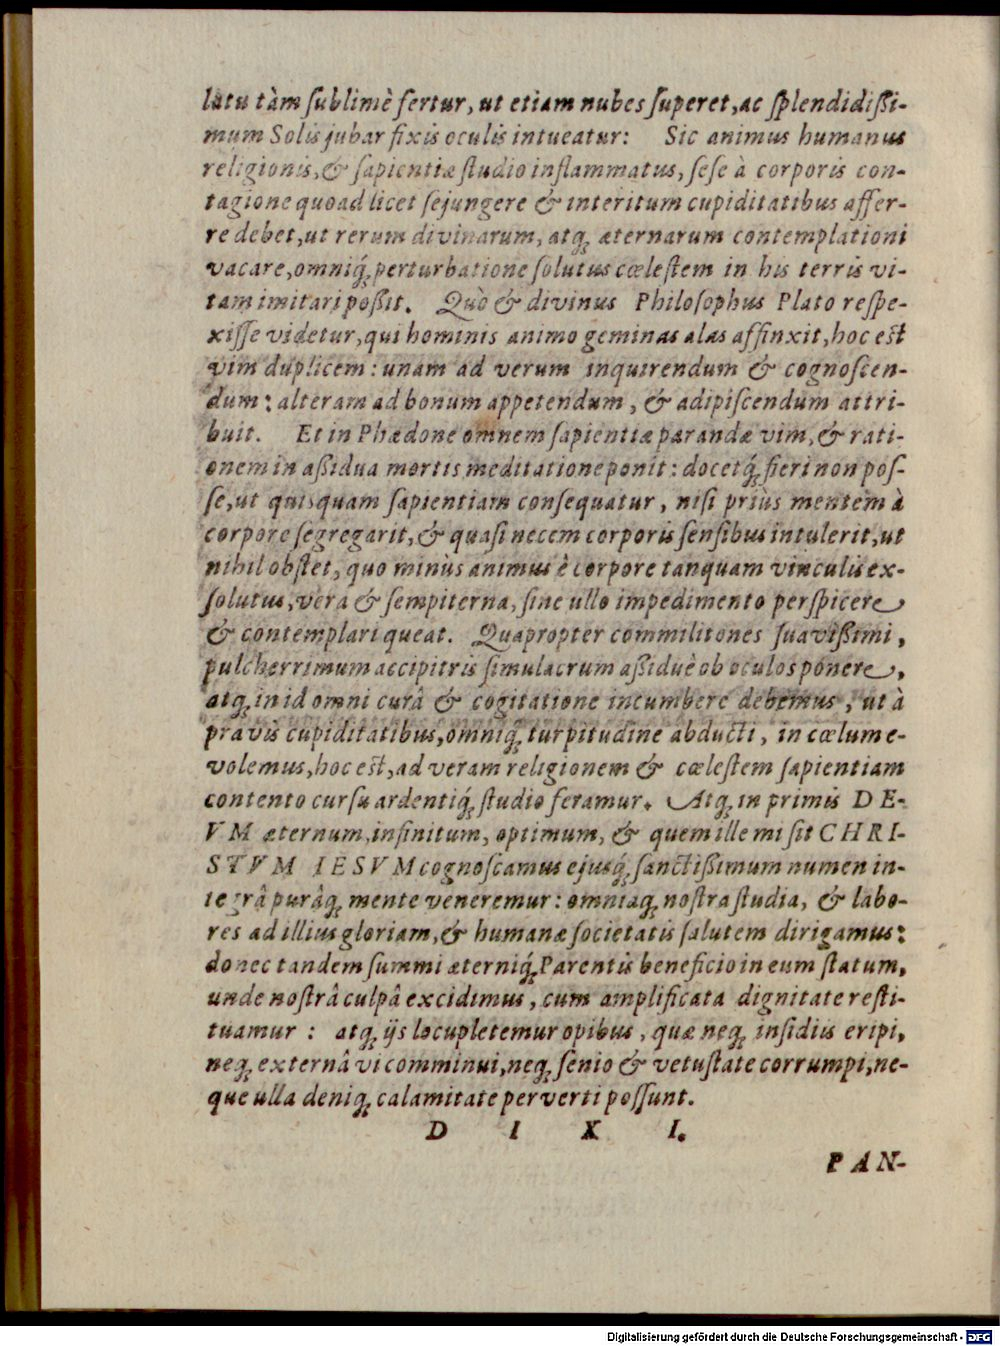 latu tàm ſublimè fertur, ut etiam nubes ſuperet, ac ſplendidißi-
mum Solis jubar fixis oculis intueatur: Sic animus humanus
religionis, & ſapientiæ ſtudio inflammatus, ſeſe à corporis con-
tagione quoad licet ſejungere & interitum cupiditatibus affer-
re debet, ut rerum divinarum, atq; æternarum contemplationi
vacare, omniq́; perturbatione ſolutus cœleſtem in his terris vi-
tam imitari poßit. Quò & divinus Philoſophus Plato reſpe-
xiſſe videtur, qui hominis animo geminas alas affinxit, hoc est
vim duplicem: unam ad verum inquirendum & cognoſcen-
dum: alteram ad bonum appetendum, & adipiſcendum attri-
buit. Et in Phædone omnem ſapientiæ parandæ vim, & rati-
onem in aßidua mortis meditatione ponit: docetq́; fieri non poſ-
ſe, ut quisquam ſapientiam conſequatur, niſi priùs mentem à
corpore ſegregarit, & quaſi necem corporis ſenſibus intulerit, ut
nihil obſtet, quo minùs animus è corpore tanquam vinculis ex-
ſolutus, vera & ſempiterna, ſine ullo impedimento perſpicere
& contemplari queat. Quapropter commilitones ſuavißimi,
pulcherrimum accipitris ſimulacrum aßiduè ob oculos ponere,
atq; in id omni curâ & cogitatione incumbere debemus, ut à
pravis cupiditatibus, omniq́; turpitudine abducti, in cœlum e-
volemus, hoc est, ad veram religionem & cœleſtem ſapientiam
contento curſu ardentiq́; ſtudio feramur. Atq; in primis DE-
VM æternum, infinitum, optimum, & quem ille miſit CHRI-
STVM IESVM cognoſcamus ejusq́; ſanctißimum numen in-
tegrâ purâq; mente veneremur: omniaq; noſtra ſtudia, & labo-
res ad illius gloriam, & humanæ ſocietatis ſalutem dirigamus:
donec tandem ſummi æterniq́; Parentis beneficio in eum ſtatum,
unde noſtrâ culpâ excidimus, cum amplificata dignitate reſti-
tuamur: atq; ijs locupletemur opibus, quæ neq; inſidiis eripi,
neq; externâ vi comminui, neq; ſenio & vetuſtate corrumpi, ne-
que ulla deniq; calamitate perverti poſſunt.
D I X I.
PAN-
Digitalisierung gefördert durch die Deutsche Forschungsgemeinschaft - DFG